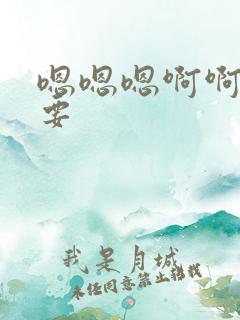 嗯嗯嗯啊啊
要
我是月城
未经同意禁止转载